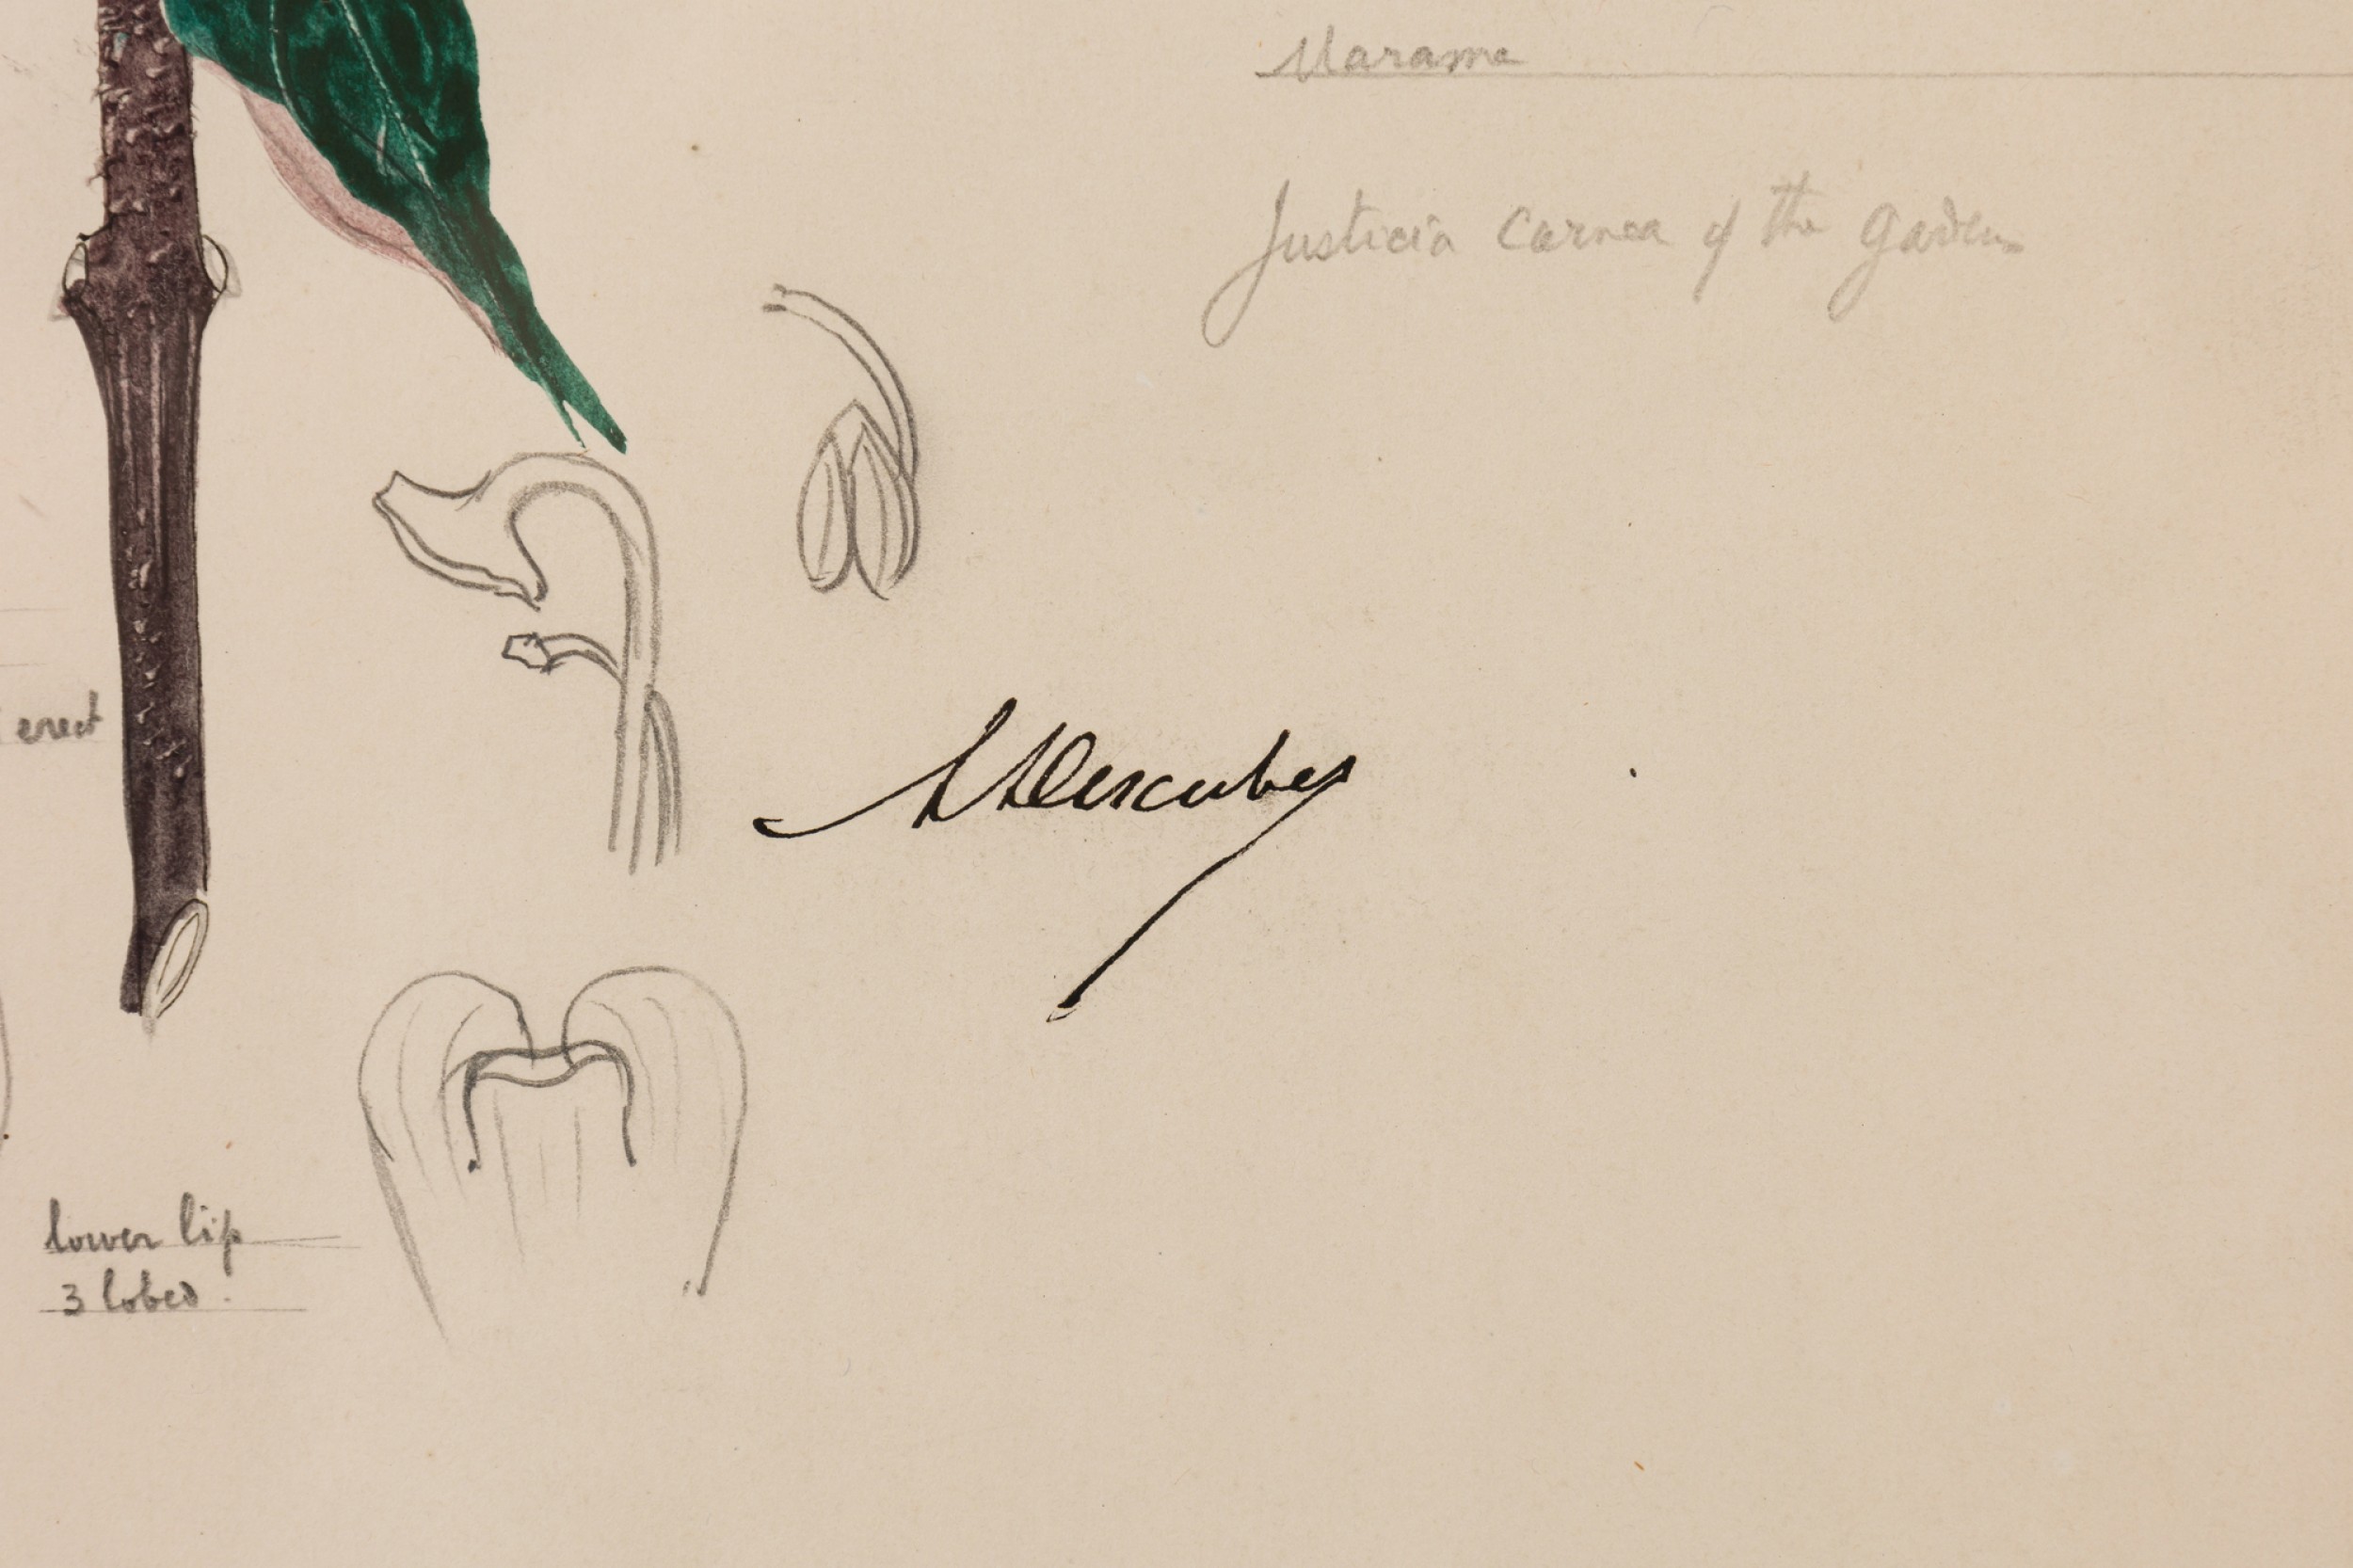 Marame
Justicia Carnea of the Gardens
erect
ADescubes
lower lip
3 lobed.